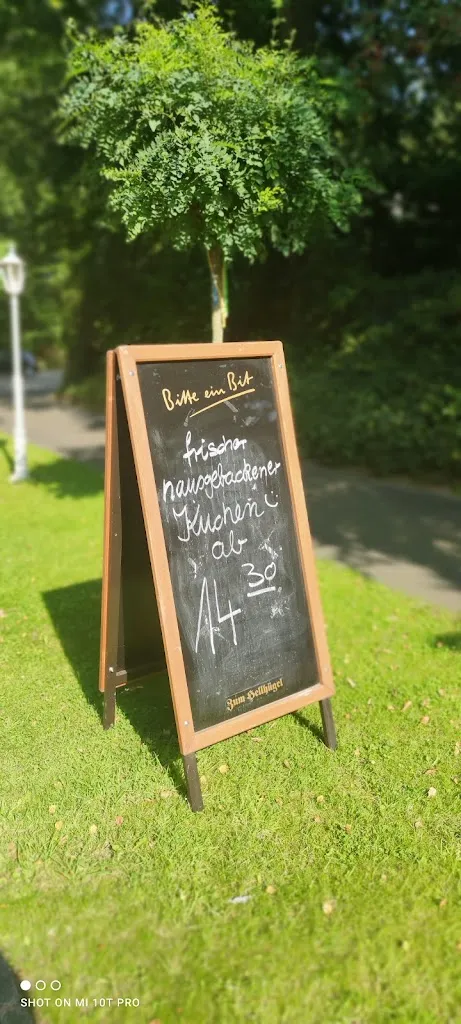 Bitte ein Bit
frischer
hausgebackener
Kuchen
ab
14 30
Zum Hellhügel
SHOT ON MI 10T PRO